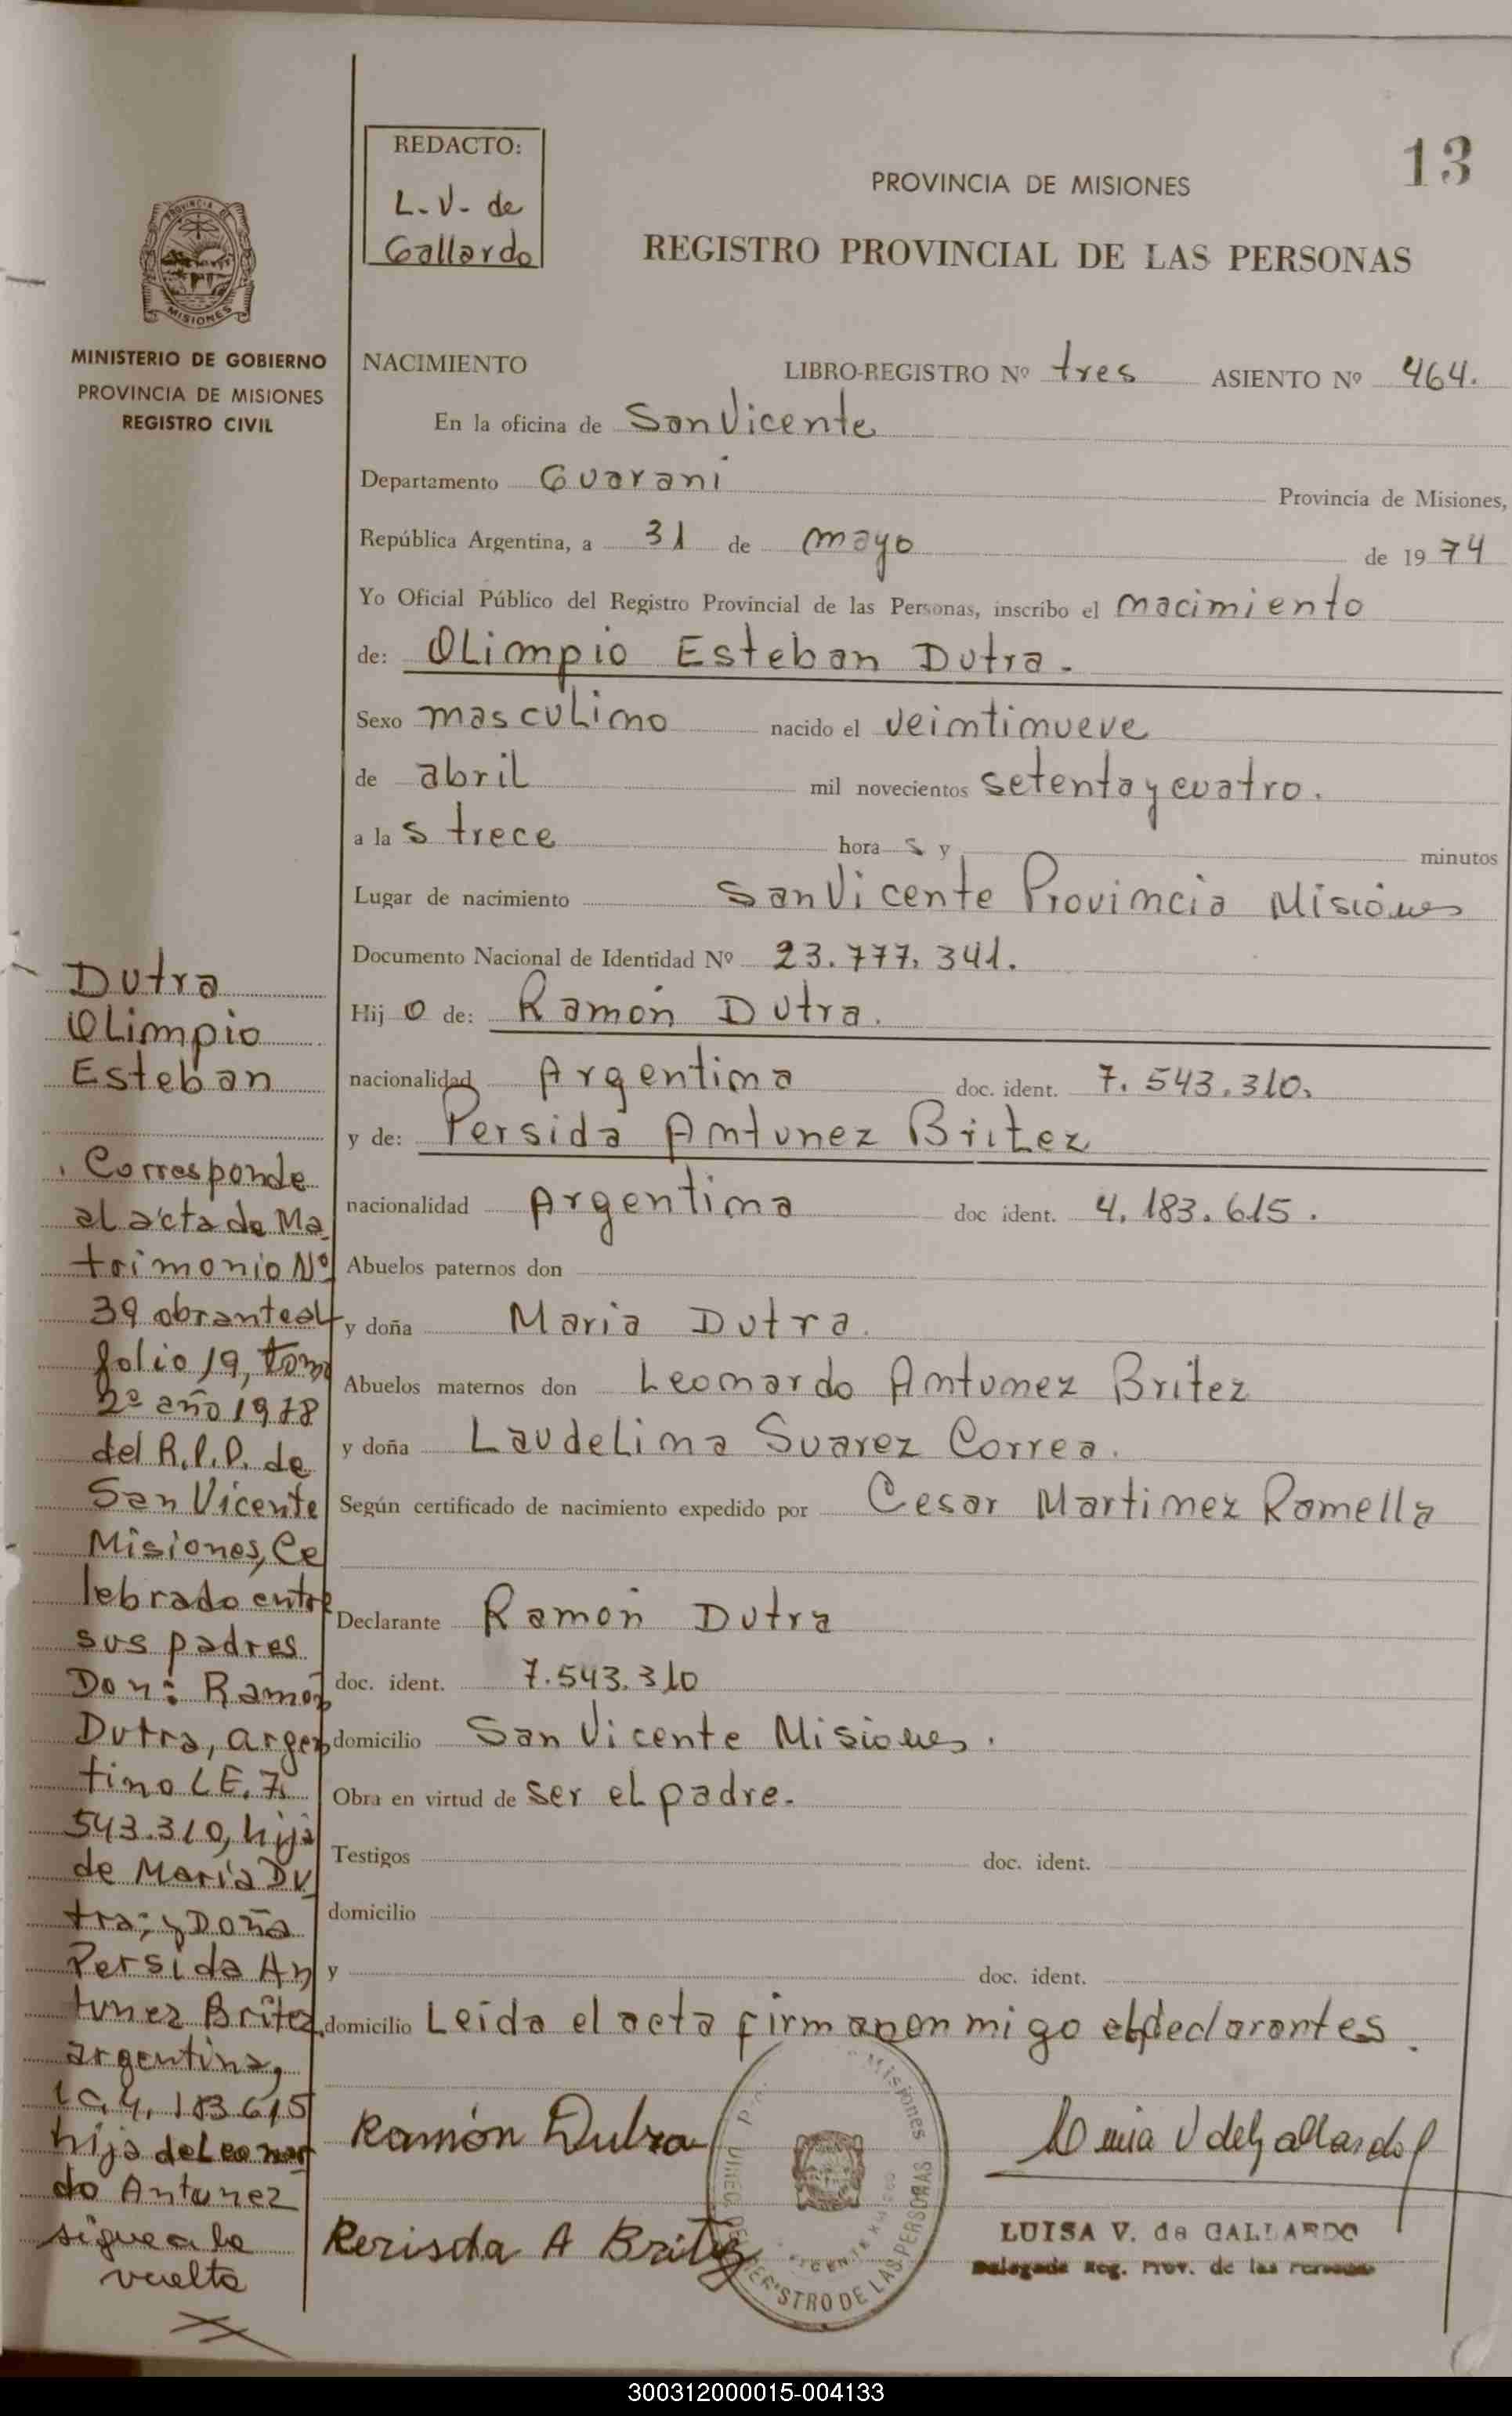 13
REDACTO:
L. V. de
Gallardo
PROVINCIA DE MISIONES
REGISTRO PROVINCIAL DE LAS PERSONAS
PROVINCIA DE
MISIONES
MINISTERIO DE GOBIERNO
PROVINCIA DE MISIONES
REGISTRO CIVIL
NACIMIENTO LIBRO-REGISTRO Nº tres ASIENTO Nº 464.
En la oficina de San Vicente
Departamento Guarani Provincia de Misiones,
República Argentina, a 31 de mayo de 1974
Yo Oficial Público del Registro Provincial de las Personas, inscribo el nacimiento
de: Olimpio Esteban Dutra.
Sexo masculino nacido el veintinueve
de abril mil novecientos setenta y cuatro.
a las trece horas y minutos
Lugar de nacimiento San Vicente Provincia Misiones
Documento Nacional de Identidad Nº 23.777.341.
Hijo de: Ramón Dutra.
nacionalidad Argentina doc. ident. 7.543.310.
y de: Persida Antunez Britez
nacionalidad Argentina doc ident. 4.183.615.
Abuelos paternos don
y doña Maria Dutra.
Abuelos maternos don Leonardo Antunez Britez
y doña Laudelina Suarez Correa.
Según certificado de nacimiento expedido por Cesar Martinez Ramella
Declarante Ramón Dutra
doc. ident. 7.543.310
domicilio San Vicente Misiones.
Obra en virtud de ser el padre.
Testigos doc. ident.
domicilio
y doc. ident.
domicilio Leida el acta firman conmigo declarantes.
Ramón Dutra
Perisda A Britez
LUISA V. de GALLARDO
Delegada Reg. Prov. de las Personas
Misiones
REGISTRO DE LAS PERSONAS
Dutra
Olimpio
Esteban
Corresponde
al acta de Ma
trimonio Nº
39 obrante al
folio 19, tomo
2º año 1978
del R.P.P. de
San Vicente
Misiones, Ce
lebrado entre
sus padres
Don: Ramón
Dutra, argen
tino L.E. 7.
543.310, hijo
de María Du
tra; y Doña
Persida An
tunez Britez,
argentina,
L.C. 4.183.615
hija de Leonar
do Antunez
sigue a la
vuelta
300312000015-004133